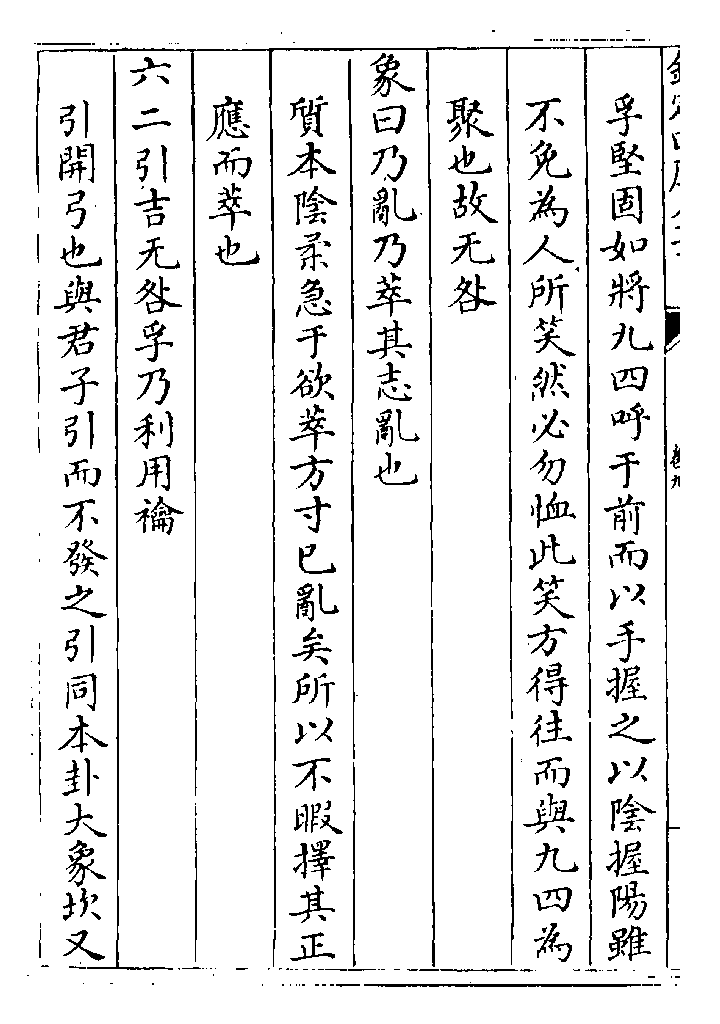 孚堅固如將九四呼于前而以手握之以陰握陽雖
不免為人所笑然必勿恤此笑方得往而與九四為
聚也故无咎
象曰乃亂乃萃其志亂也
質本陰柔急于欲萃方寸已亂矣所以不暇擇其正
應而萃也
六二引吉无咎孚乃利用禴
引開弓也與君子引而不發之引同本卦大象坎又